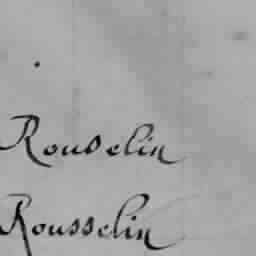 Rouselin
Rousselin